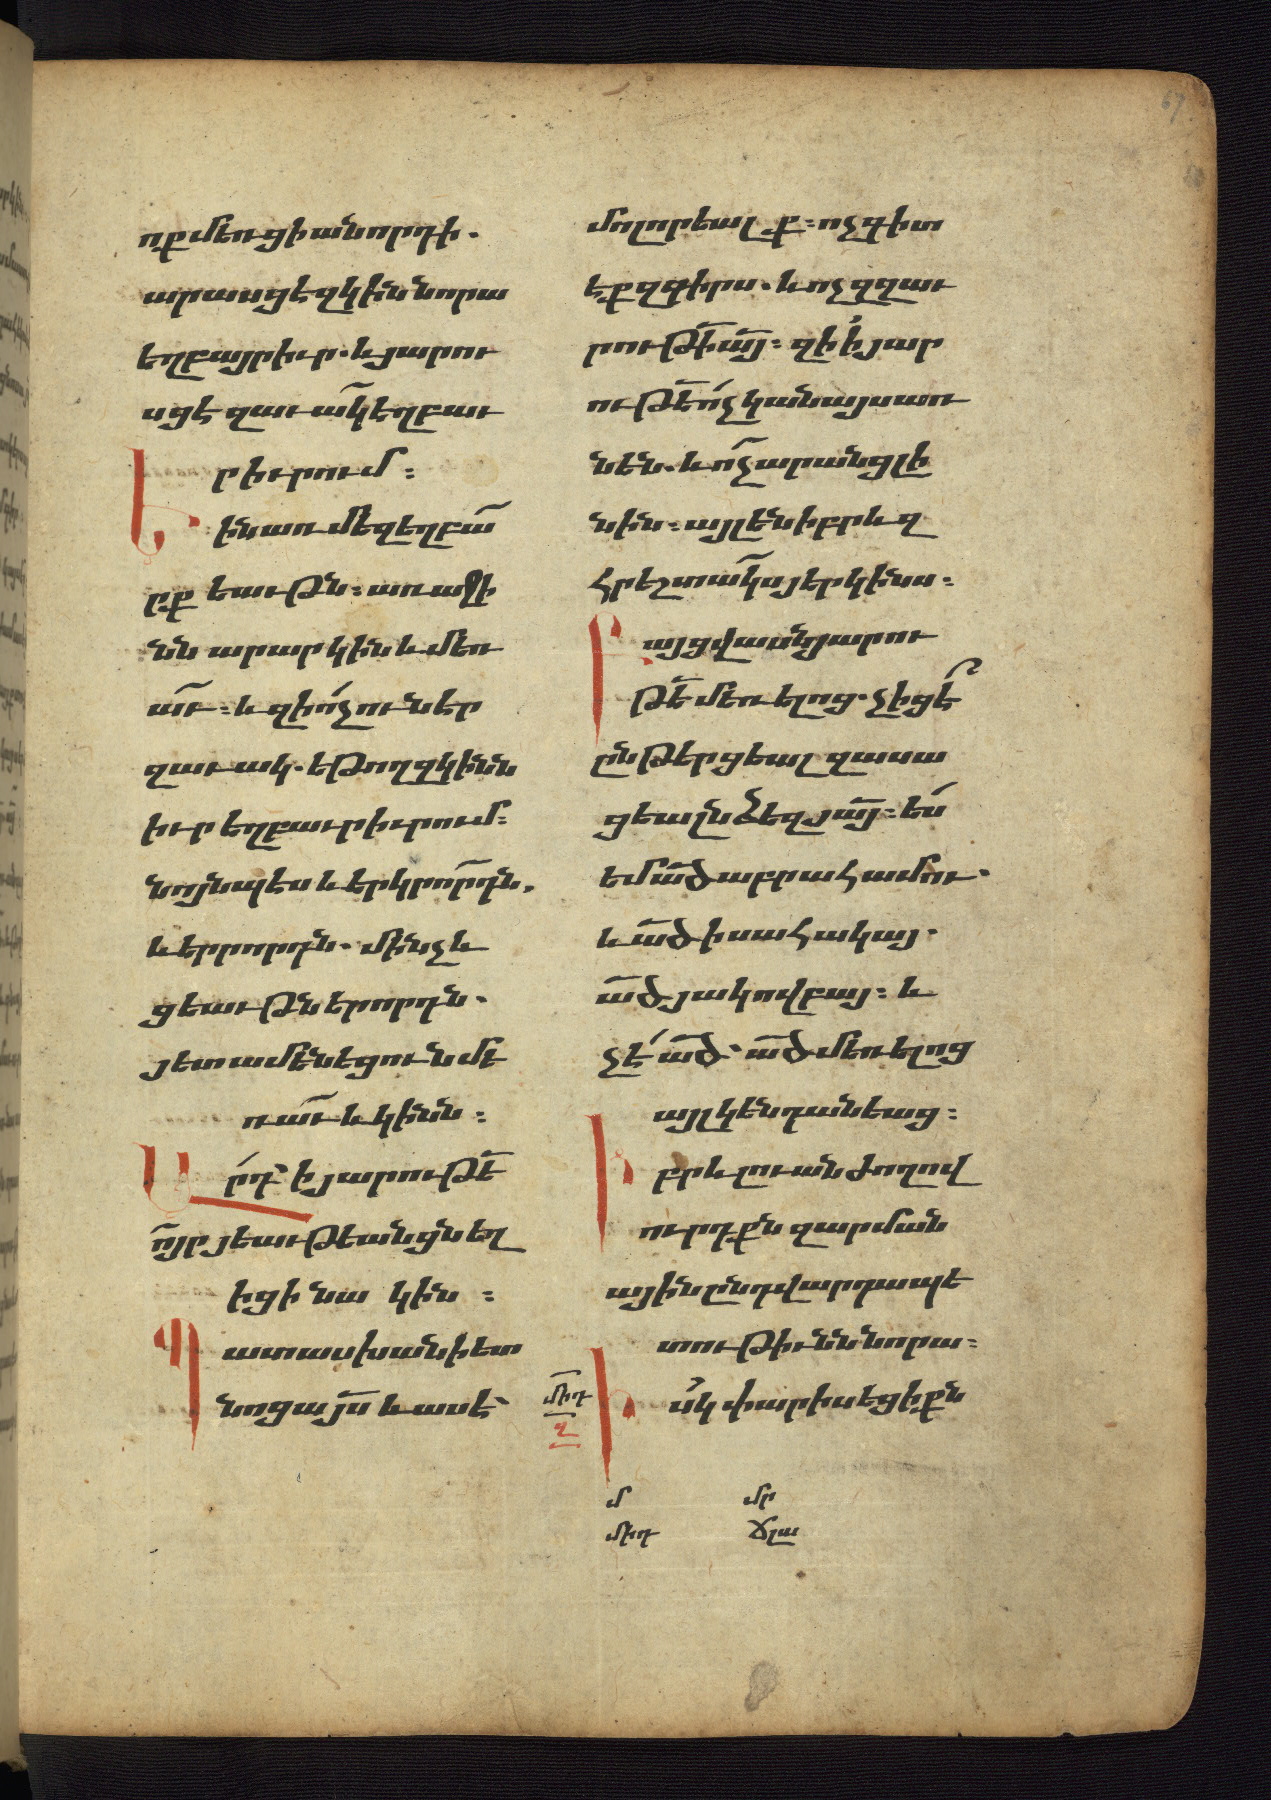 ոք մեռցի անորդի.
արասցէ զկին նորա
եղբայր իւր. և յարու
սցէ զաւակ եղբաւ
ր իւրում:
Եին առ մեզ եղբա
րք եաւթն: առաջի
նն արար կին և մեռ
աւ: և զի ոչ ուներ
զաւակ. եթող զկինն
իւր եղբաւր իւրում:
նոյնպէս և երկրորդն.
և երրորդն. մինչև
ցեաւթներորդն.
յետ ամենեցուն մե
ռաւ և կինն:
Արդ՝ ի յարութե
ոյր յեաւթէանցն եղ
իցի նա կին:
Պատասխանի ետ
նոցա յս և ասէ՝
մոլորեալ ք: ոչ գիտ
էք զգիրս. և ոչ զզաւ
րութի այ: զի ի յար
ութե ոչ կանայս առ
նեն. և ոչ արանց լի
նին: այլ են իբրև զ
հրեշտակս յերկինս.
Բայց վասն յարու
թե մեռելոց. չիցէ
ընթերցեալ զասա
ցեալն ձեզ յայ: ես
եմ ած աբրահամու.
և ած իսահակայ.
ած յակովբայ: և
չէ ած՝ ած մեռելոց
այլ կենդանեաց:
Իբրև լուան ժողով
ուրդքն զարման
ային ընդ վարդապե
տութիւնն նորա:
մխդ
Իսկ փարիսեցիքն
մ մր
մխդ ճլա